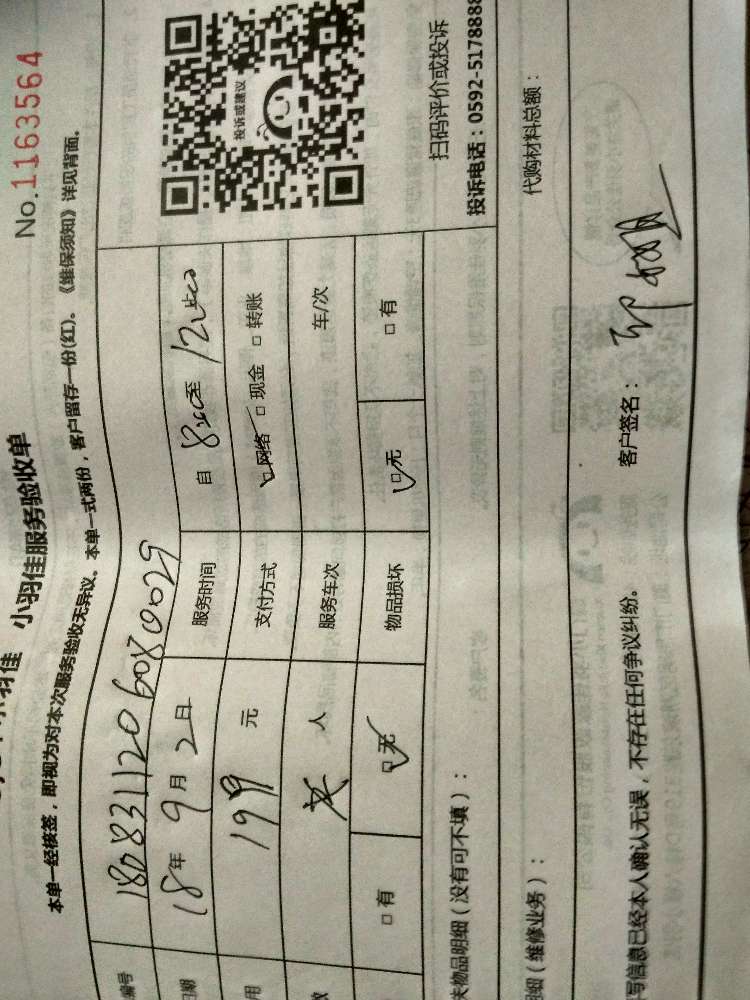 小羽佳 小羽佳服务验收单
No.1163564
本单一经核签，即视为对本次服务验收无异议。本单一式两份，客户留存一份(红)。《维保须知》详见背面。
编号 1808311206080029
日期 18年 9月 2日 服务时间 自 8:00至 12:00止
用 199 元 支付方式 网络 □ 现金 □ 转账
数 人 服务车次 车/次
□ 有 □无 物品损坏 □无 □ 有
投诉或建议
扫码评价或投诉
投诉电话：0592-5178888
失物品明细（没有可不填）：
明细（维修业务）： 代购材料总额：
写信息已经本人确认无误，不存在任何争议纠纷。 客户签名：